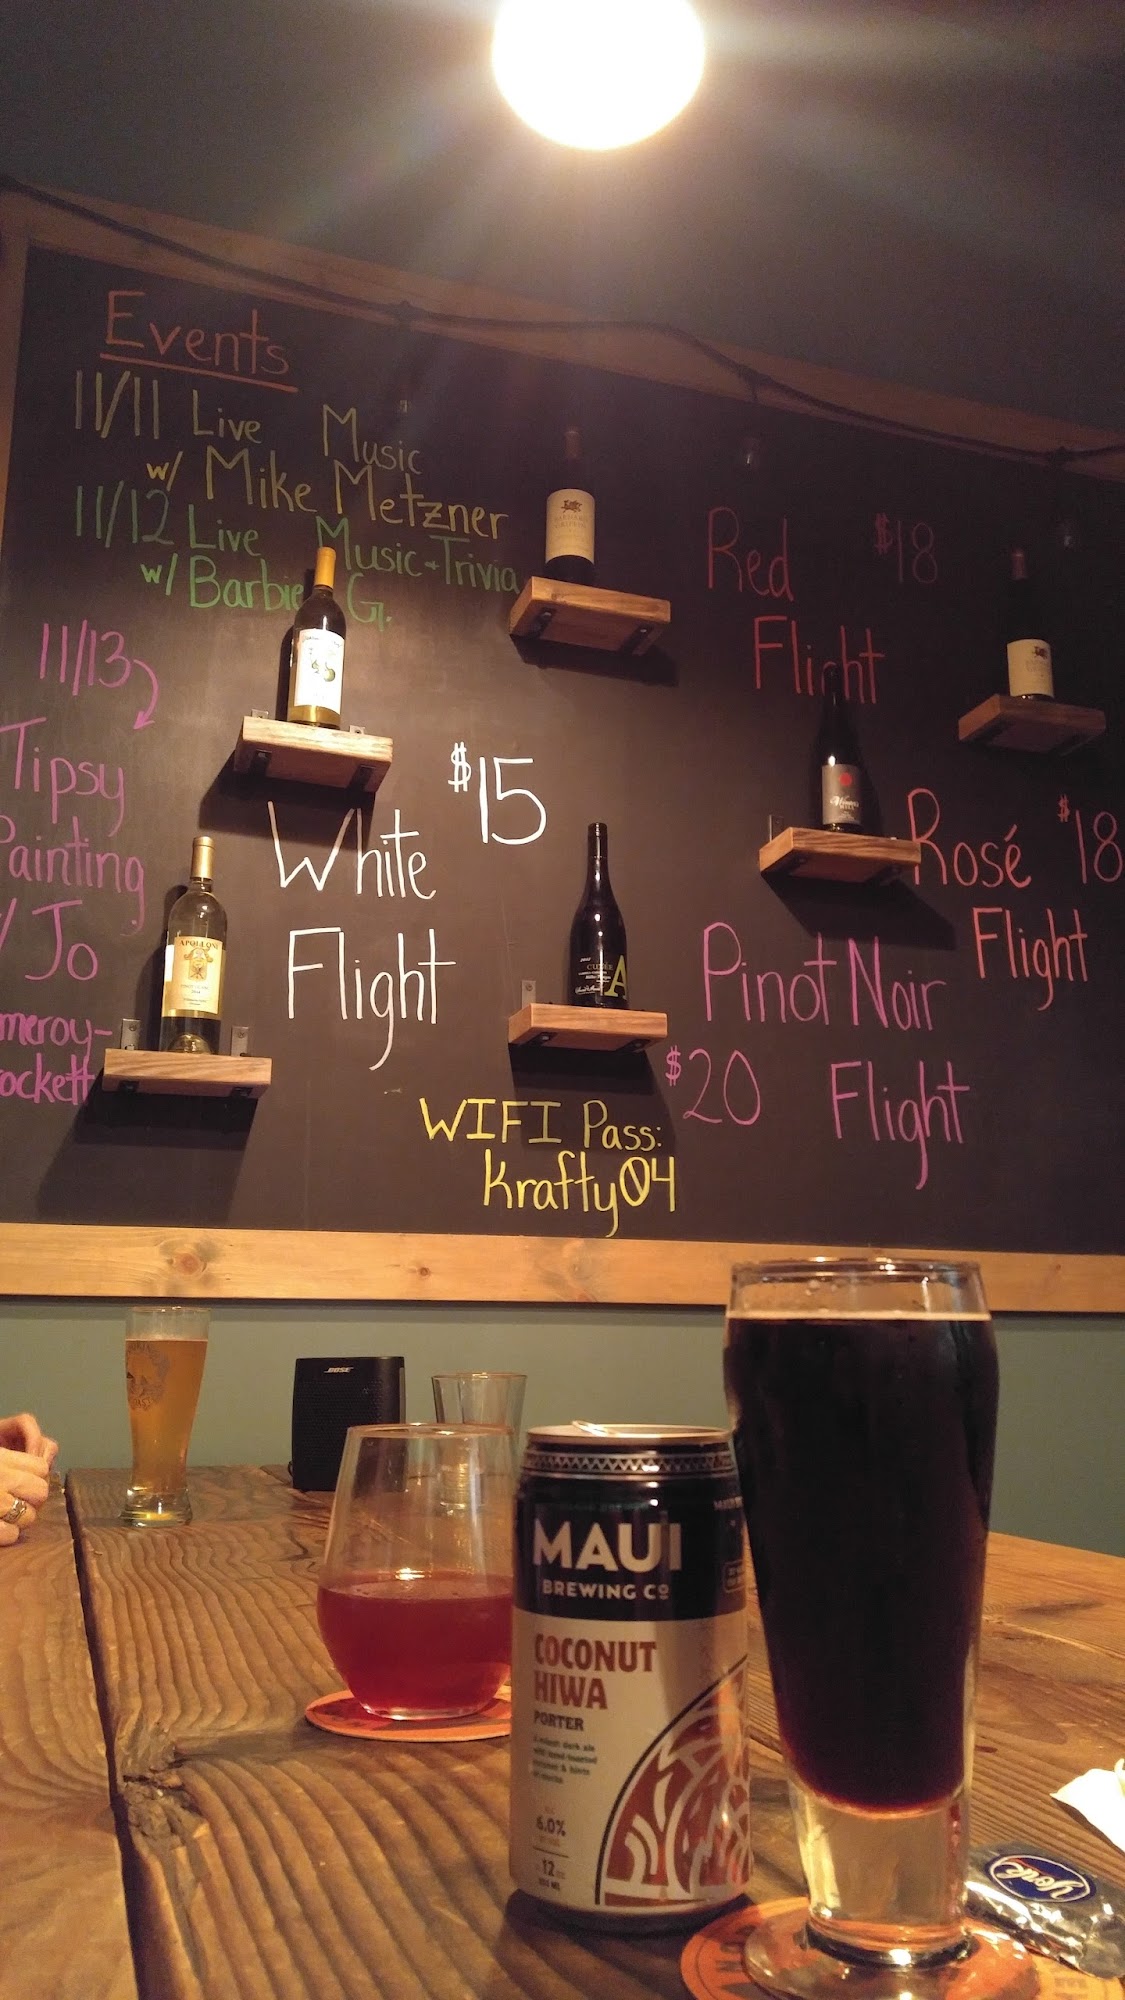 Events
11/11 Live Music
w/ Mike Metzner
11/12 Live Music + Trivia
w/ Barbie G.
11/13
Tipsy
Painting
w/ Jo
meroy-
rockett
White $15
Flight
Red $18
Flight
Rosé $18
Flight
Pinot Noir
$20 Flight
WIFI Pass:
Krafty04
APOLLONI
CUVÉE
A
BOSE
MAUI
BREWING CO
COCONUT
HIWA
PORTER
6.0%
12
York